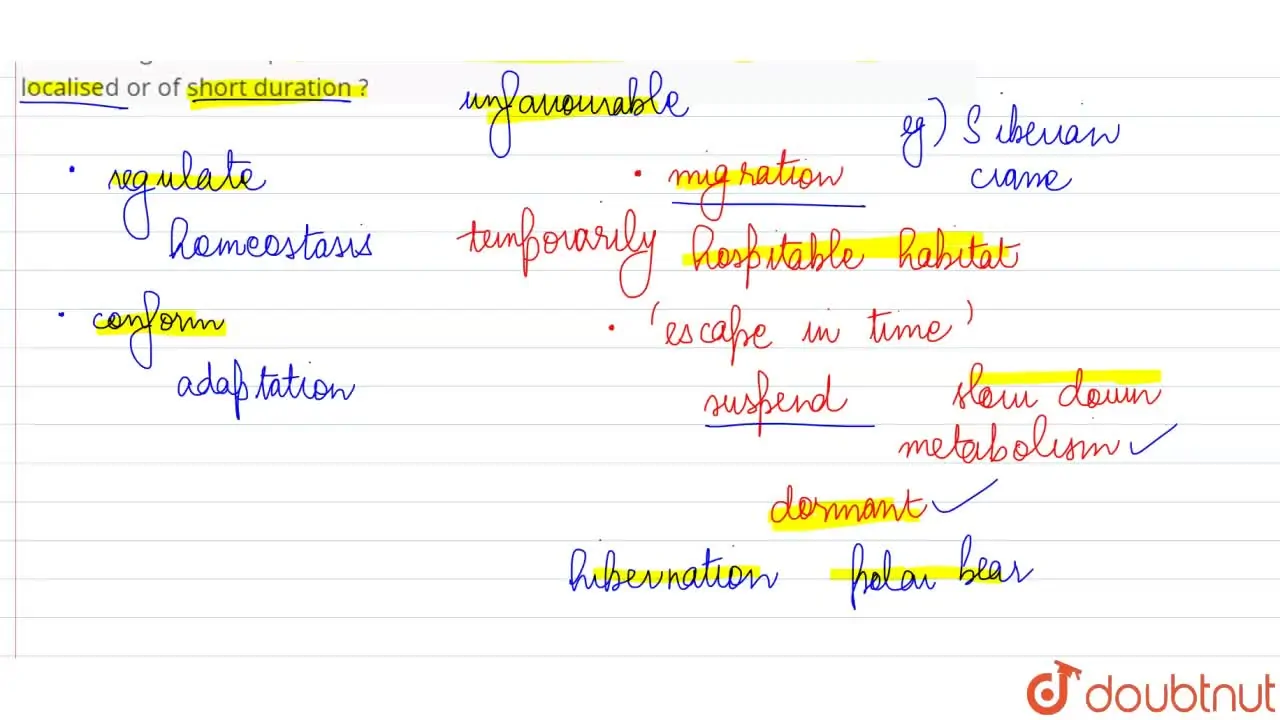 localised or of short duration ?
unfavourable
eg) Siberian
crane
• regulate
homeostasis
• conform
adaptation
• migration
temporarily hospitable habitat
• 'escape in time'
suspend
slow down
metabolism ✓
dormant ✓
hibernation polar bear
doubtnut